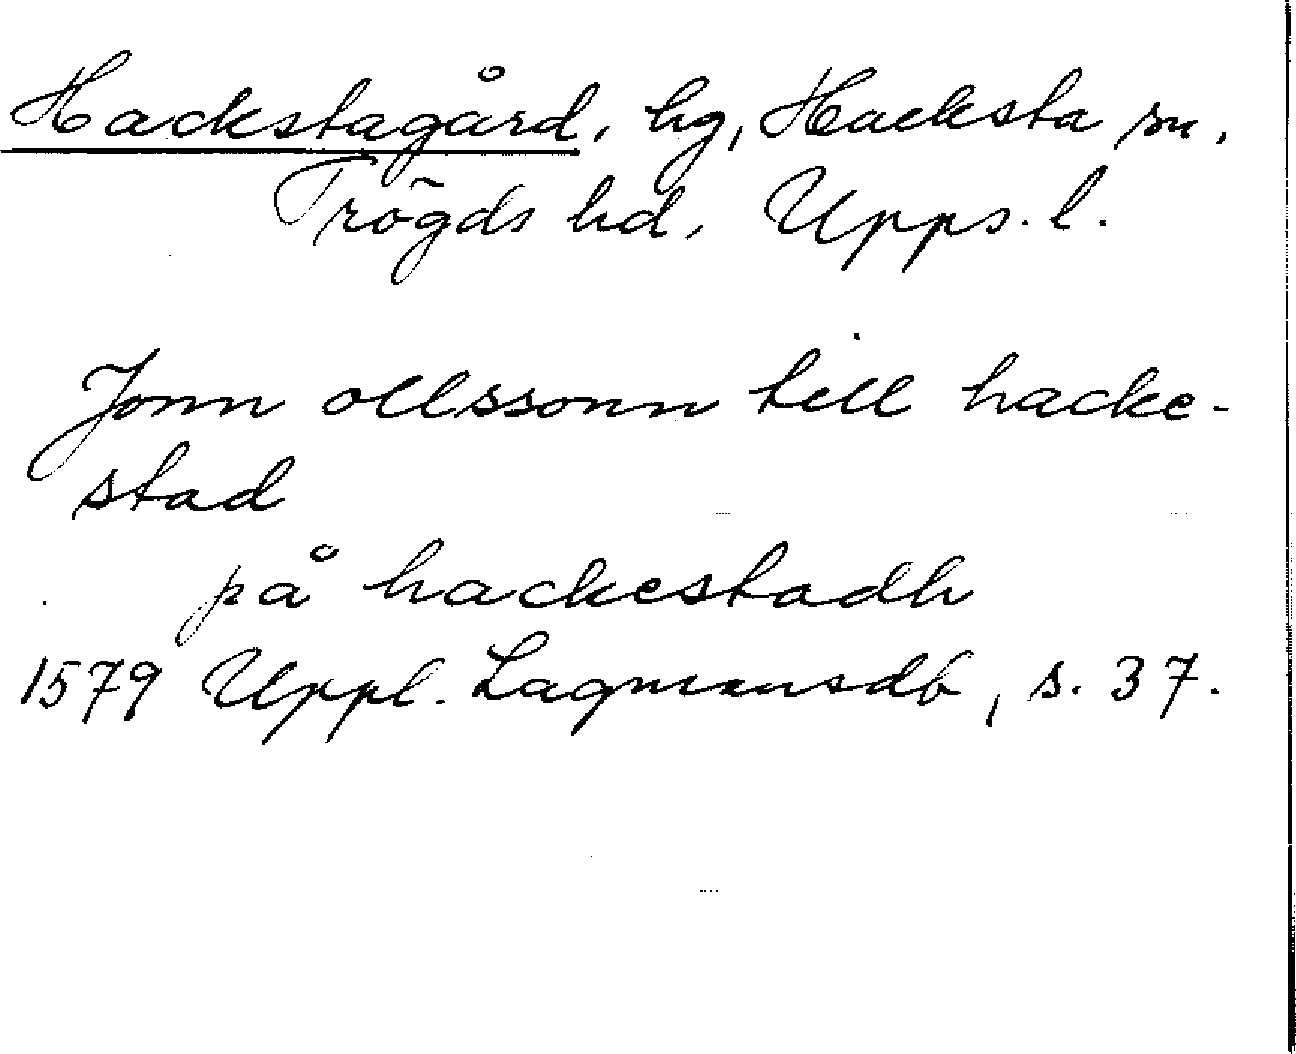 Hackstagård, hg, Hacksta sn,
Trögds hd, Upps. l.
Jonn ollssonn till hacke-
stad
på hackestadh
1579 Uppl. Lagmansdb, s. 37.